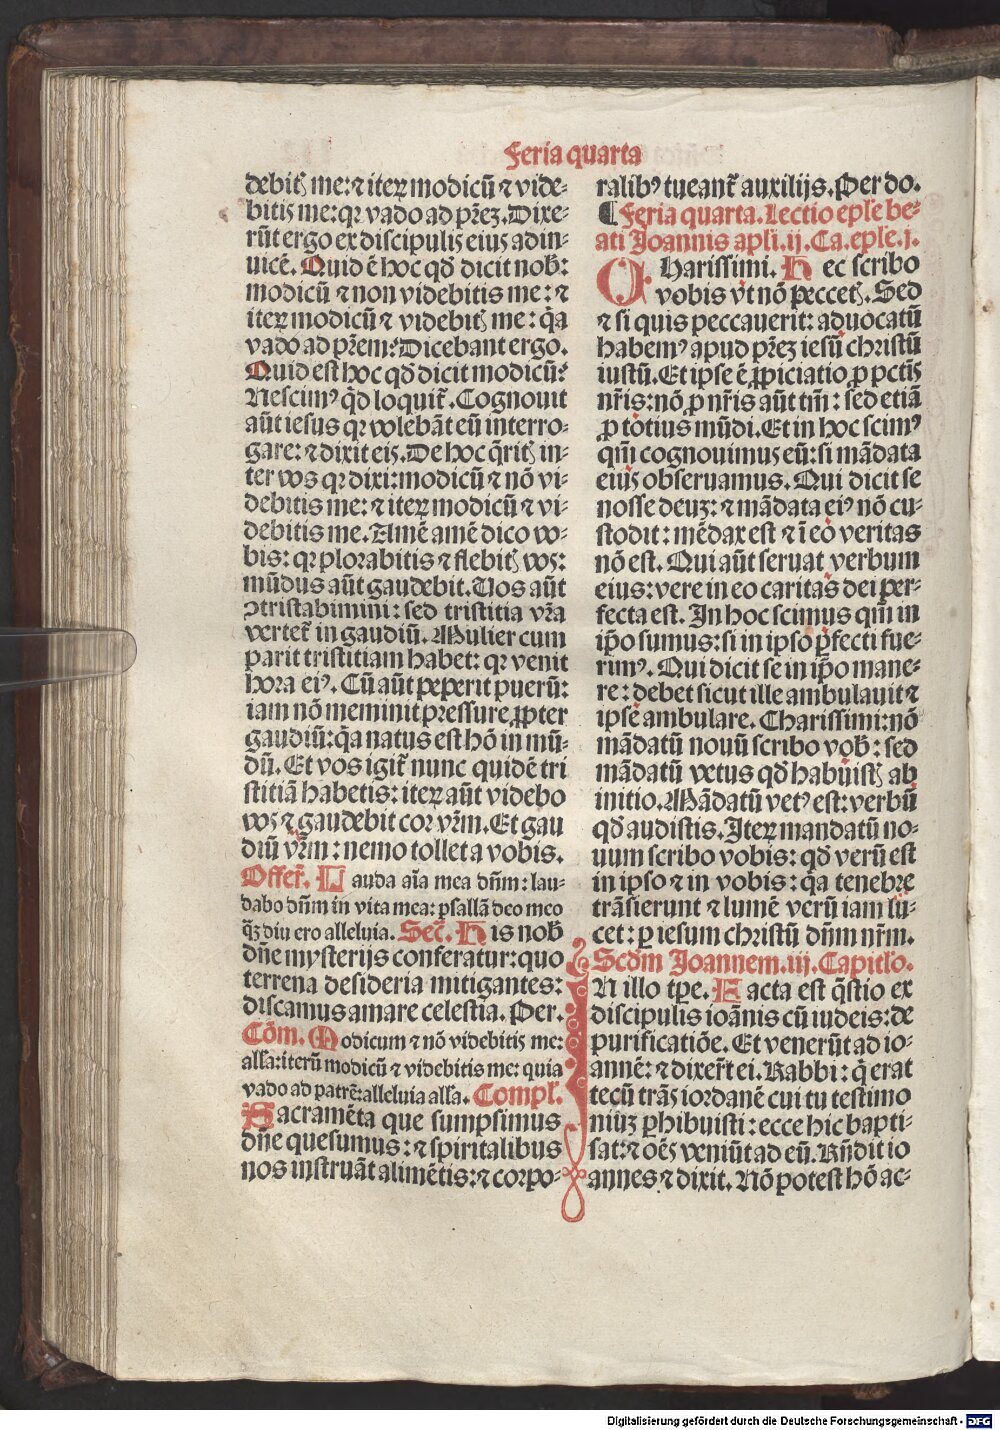 Feria quarta
debitꝭ me: ⁊ iteꝝ modicū ⁊ vide-
bitis me: qꝛ vado ad pr̄eꝫ. Dixe-
rūt ergo ex discipulis eius adin-
uicē. Quid ē hoc qd̄ dicit nob̄:
modicū ⁊ non videbitis me: ⁊
iteꝝ modicū ⁊ videbitꝭ me: q̄a
vado ad pr̄em? Dicebant ergo.
Quid est hoc qd̄ dicit modicū?
Nescimꝰ qd̄ loquit̄. Cognouit
aūt iesus qꝛ volebāt eū interro-
gare: ⁊ dixit eis. De hoc q̄ritꝭ in-
ter vos qꝛ dixi: modicū ⁊ nō vi-
debitis me: ⁊ iteꝝ modicū ⁊ vi-
debitis me. Amē amē dico vo-
bis: qꝛ plorabitis ⁊ flebitꝭ vos:
mūdus aūt gaudebit. Uos aūt
ꝯtristabimini: sed tristitia vr̄a
vertet̄ in gaudiū. Mulier cum
parit tristitiam habet: qꝛ venit
hora eiꝰ. Cū aūt peperit puerū:
iam nō meminit pressure ꝓpter
gaudiū: q̄a natus est hō in mū-
dū. Et vos igit̄ nunc quidē tri
stitiā habetis: iteꝝ aūt videbo
vos ⁊ gaudebit cor vr̄m. Et gau
diū vr̄m: nemo tollet a vobis.
Offer̄. Lauda aīa mea dn̄m: lau-
dabo dn̄m in vita mea: psallā deo meo
qꝫ diu ero alleluia. Sec̄. His nob̄
dn̄e mysterijs conferatur: quo
terrena desideria mitigantes:
discamus amare celestia. Per.
Cōm. Modicum ⁊ nō videbitis me:
all̄a: iterū modicū ⁊ videbitis me: quia
vado ad patrē: alleluia all̄a. Compl̄.
Sacramēta que sumpsimus
dn̄e quesumus: ⁊ spiritalibus
nos instruāt alimētis: ⁊ corpo-
ralibꝰ tueant̄ auxilijs. Per do.
¶ Feria quarta. Lectio ep̄le be-
ati Joannis apl̄i. ij. Ca. ep̄le. j.
Charissimi. Hec scribo
vobis vt nō peccetꝭ. Sed
⁊ si quis peccauerit: aduocatū
habemꝰ apud pr̄eꝫ iesū christū
iustū. Et ipse ē ꝓpiciatio ꝓ pctīs
nr̄is: nō ꝓ nr̄is aūt tm̄: sed etiā
ꝓ totius mūdi. Et in hoc scimꝰ
qm̄ cognouimus eū: si mādata
eius obseruamus. Qui dicit se
nosse deuꝫ: ⁊ mādata eiꝰ nō cu-
stodit: mēdax est ⁊ ī eo veritas
nō est. Qui aūt seruat verbum
eius: vere in eo caritas dei per-
fecta est. In hoc scimus qm̄ in
ip̄o sumus: si in ipso ꝑfecti fue-
rimꝰ. Qui dicit se in ip̄o mane-
re: debet sicut ille ambulauit ⁊
ipse ambulare. Charissimi: nō
mādatū nouū scribo vob̄: sed
mādatū vetus qd̄ habuistꝭ ab
initio. Mādatū vetꝰ est: verbū
qd̄ audistis. Iteꝝ mandatū no-
uum scribo vobis: qd̄ verū est
in ipso ⁊ in vobis: q̄a tenebre
trāsierunt ⁊ lumē verū iam lu-
cet: ꝑ iesum christū dn̄m nr̄m.
Scd̄m Joannem. iij. Capitlo.
IN illo tp̄e. Facta est q̄stio ex
discipulis ioānis cū iudeis: de
purificatiōe. Et venerūt ad io-
annē: ⁊ dixer̄t ei. Rabbi: q̄ erat
tecū trās iordanē cui tu testimo
niuꝫ ꝑhibuisti: ecce hic bapti-
sat: ⁊ oēs veniūt ad eū. Rn̄dit io
annes ⁊ dixit. Nō potest hō ac-
Digitalisierung gefördert durch die Deutsche Forschungsgemeinschaft - DFG